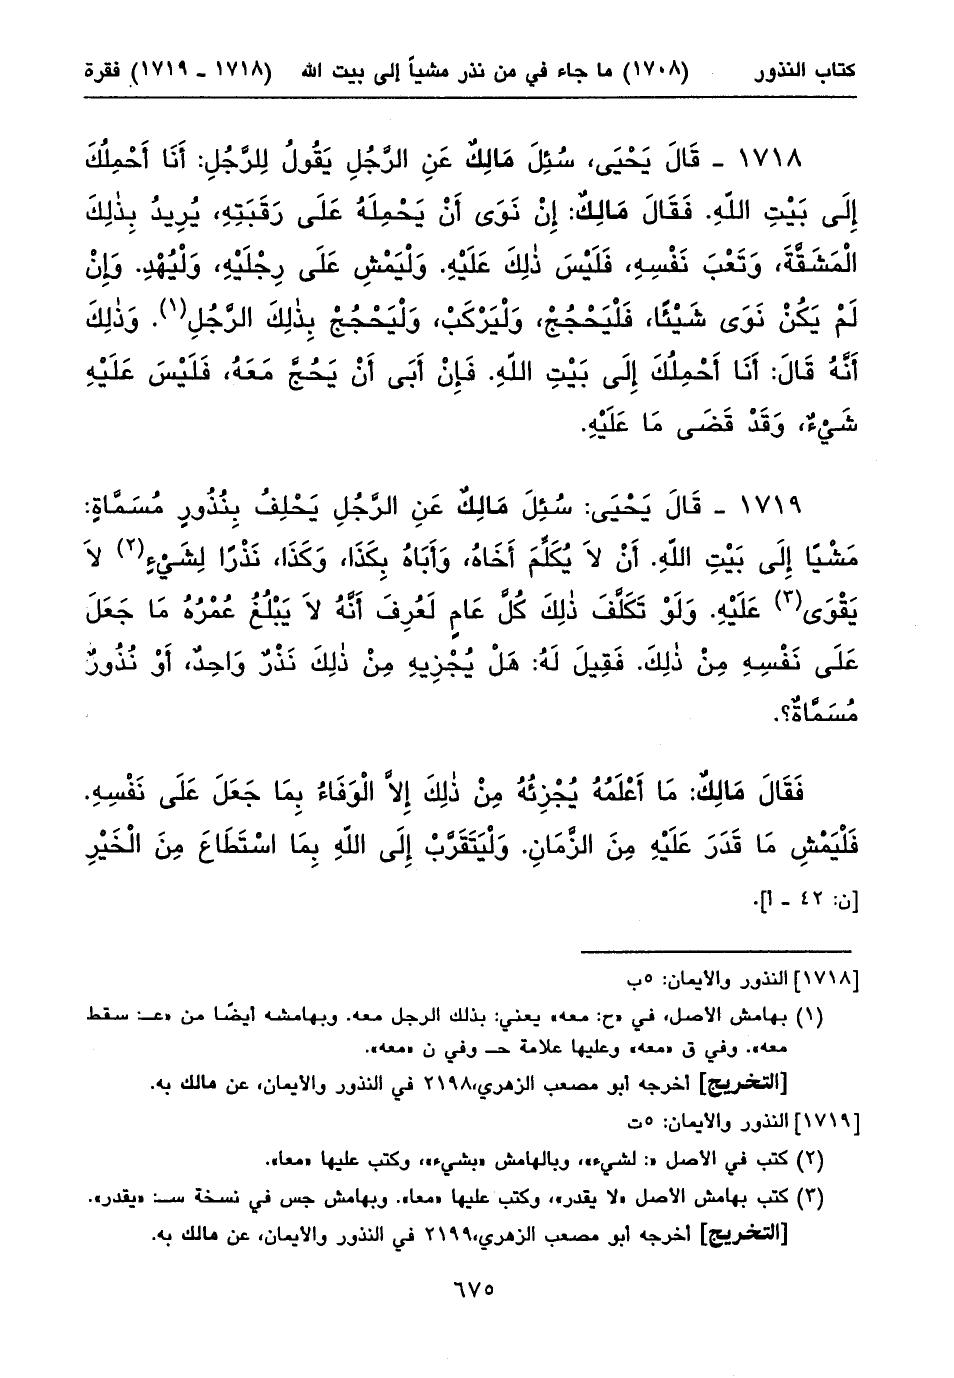 كتاب النذور (١٧٠٨) ما جاء في من نذر مشياً إلى بيت الله (١٧١٨ - ١٧١٩) فقرة
١٧١٨ - قَالَ يَحْيَى، سُئِلَ مَالِكٌ عَنِ الرَّجُلِ يَقُولُ لِلرَّجُلِ: أَنَا أَحْمِلُكَ
إِلَى بَيْتِ اللّهِ. فَقَالَ مَالِكٌ: إِنْ نَوَى أَنْ يَحْمِلَهُ عَلَى رَقَبَتِهِ، يُرِيدُ بِذٰلِكَ
الْمَشَقَّةَ، وَتَعْبَ نَفْسِهِ، فَلَيْسَ ذٰلِكَ عَلَيْهِ. وَلْيَمْشِ عَلَى رِجْلَيْهِ، وَلْيُهْدِ. وَإِنْ
لَمْ يَكُنْ نَوَى شَيْئًا، فَلْيَحْجُجْ، وَلْيَرْكَبْ، وَلْيَحْجُجْ بِذٰلِكَ الرَّجُلِ(١). وَذٰلِكَ
أَنَّهُ قَالَ: أَنَا أَحْمِلُكَ إِلَى بَيْتِ اللّهِ. فَإِنْ أَبَى أَنْ يَحُجَّ مَعَهُ، فَلَيْسَ عَلَيْهِ
شَيْءٌ، وَقَدْ قَضَى مَا عَلَيْهِ.
١٧١٩ - قَالَ يَحْيَى: سُئِلَ مَالِكٌ عَنِ الرَّجُلِ يَحْلِفُ بِنُذُورٍ مُسَمَّاةٍ:
مَشْيًا إِلَى بَيْتِ اللّهِ. أَنْ لاَ يُكَلِّمَ أَخَاهُ، وَأَبَاهُ بِكَذَا، وَكَذَا، نَذْرًا لِشَيْءٍ(٢) لاَ
يَقْوَى(٣) عَلَيْهِ. وَلَوْ تَكَلَّفَ ذٰلِكَ كُلَّ عَامٍ لَعُرِفَ أَنَّهُ لاَ يَبْلُغُ عُمْرُهُ مَا جَعَلَ
عَلَى نَفْسِهِ مِنْ ذٰلِكَ. فَقِيلَ لَهُ: هَلْ يُجْزِيهِ مِنْ ذٰلِكَ نَذْرٌ وَاحِدٌ، أَوْ نُذُورٌ
مُسَمَّاةٌ؟.
فَقَالَ مَالِكٌ: مَا أَعْلَمُهُ يُجْزِئُهُ مِنْ ذٰلِكَ إِلاَّ الْوَفَاءُ بِمَا جَعَلَ عَلَى نَفْسِهِ.
فَلْيَمْشِ مَا قَدَرَ عَلَيْهِ مِنَ الزَّمَانِ. وَلْيَتَقَرَّبْ إِلَى اللّهِ بِمَا اسْتَطَاعَ مِنَ الْخَيْرِ
[ن: ٤٢ - أ].
[١٧١٨] النذور والايمان: ٥ب
(١) بهامش الاصل، في «ح: معه» يعني: بذلك الرجل معه. وبهامشه أيضًا من «عـ: سقط
معه». وفي ق «معه» وعليها علامة حـ وفي ن «معه».
[التخريج] أخرجه أبو مصعب الزهري،٢١٩٨ في النذور والايمان، عن مالك به.
[١٧١٩] النذور والايمان: ٥ت
(٢) كتب في الاصل «: لشيء»، وبالهامش «بشيء»، وكتب عليها «معا».
(٣) كتب بهامش الاصل «لا يقدر»، وكتب عليها «معا». وبهامش جس في نسخة سـ: «يقدر».
[التخريج] أخرجه أبو مصعب الزهري،٢١٩٩ في النذور والايمان، عن مالك به.
٦٧٥